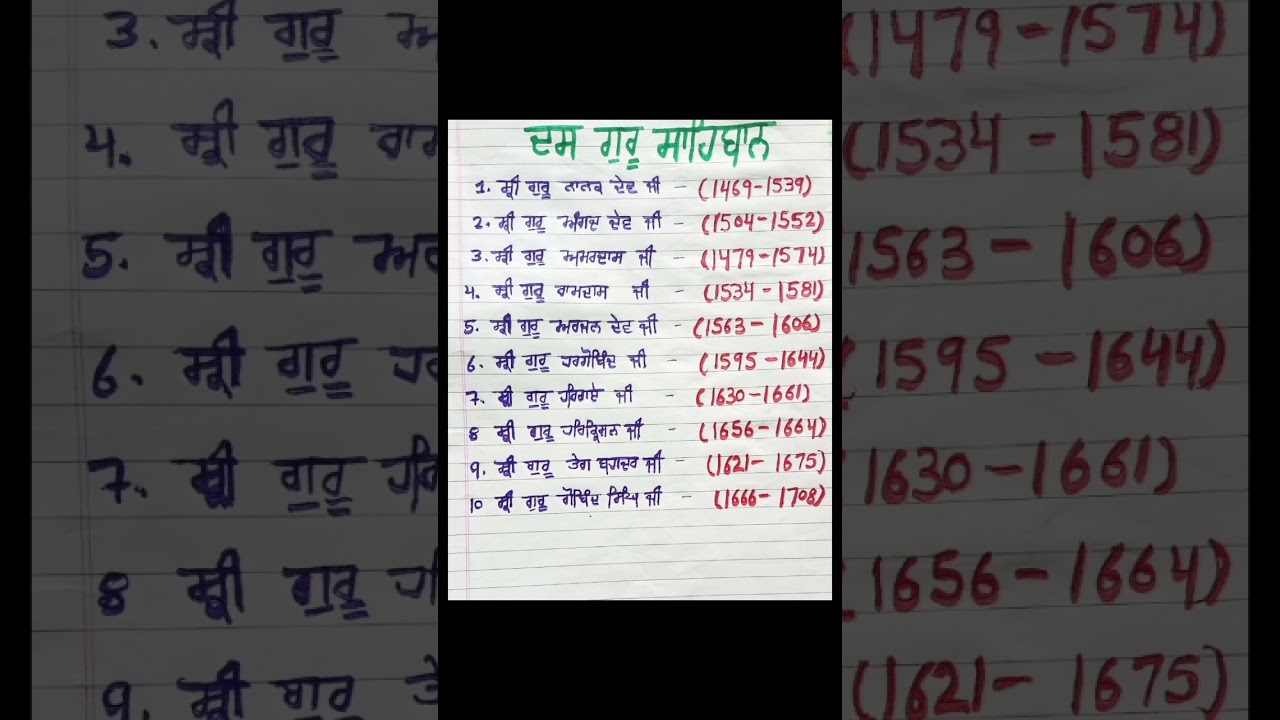 ਦਸ ਗੁਰੂ ਸਾਹਿਬਾਨ
1. ਸ਼੍ਰੀ ਗੁਰੂ ਨਾਨਕ ਦੇਵ ਜੀ - (1469-1539)
2. ਸ਼੍ਰੀ ਗੁਰੂ ਅੰਗਦ ਦੇਵ ਜੀ - (1504-1552)
3. ਸ਼੍ਰੀ ਗੁਰੂ ਅਮਰਦਾਸ ਜੀ - (1479-1574)
4. ਸ਼੍ਰੀ ਗੁਰੂ ਰਾਮਦਾਸ ਜੀ - (1534-1581)
5. ਸ਼੍ਰੀ ਗੁਰੂ ਅਰਜਨ ਦੇਵ ਜੀ - (1563-1606)
6. ਸ਼੍ਰੀ ਗੁਰੂ ਹਰਗੋਬਿੰਦ ਜੀ - (1595-1644)
7. ਸ਼੍ਰੀ ਗੁਰੂ ਹਰਿਰਾਏ ਜੀ - (1630-1661)
8 ਸ਼੍ਰੀ ਗੁਰੂ ਹਰਿਕ੍ਰਿਸ਼ਨ ਜੀ - (1656-1664)
9. ਸ਼੍ਰੀ ਗੁਰੂ ਤੇਗ ਬਹਾਦਰ ਜੀ - (1621-1675)
10 ਸ਼੍ਰੀ ਗੁਰੂ ਗੋਬਿੰਦ ਸਿੰਘ ਜੀ - (1666-1708)